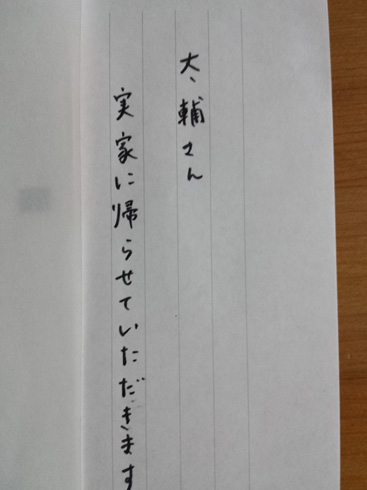 大輔さん
実家に帰らせていただきます